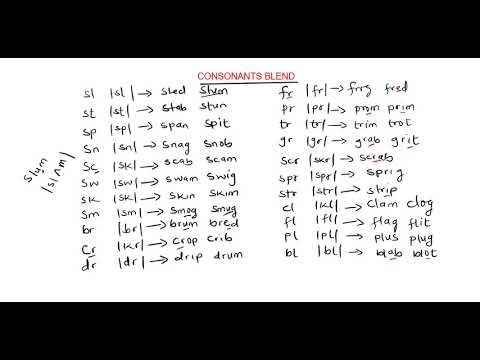 CONSONANTS BLEND
sl |sl| → sled slum
st |st| → stab stun
sp |sp| → span spit
sn |sn| → snag snob
sc |sk| → scab scam
sw |sw| → swam swig
sk |sk| → skin skim
sm |sm| → smog smug
br |br| → brum bred
cr |kr| → crop crib
dr |dr| → drip drum
slum
|slʌm|
fr |fr| → frog fred
pr |pr| → prom prim
tr |tr| → trim trot
gr |gr| → grab grit
scr |skr| → scrab
spr |spr| → sprig
str |str| → strip
cl |kl| → clam clog
fl |fl| → flag flit
pl |pl| → plus plug
bl |bl| → blab blot